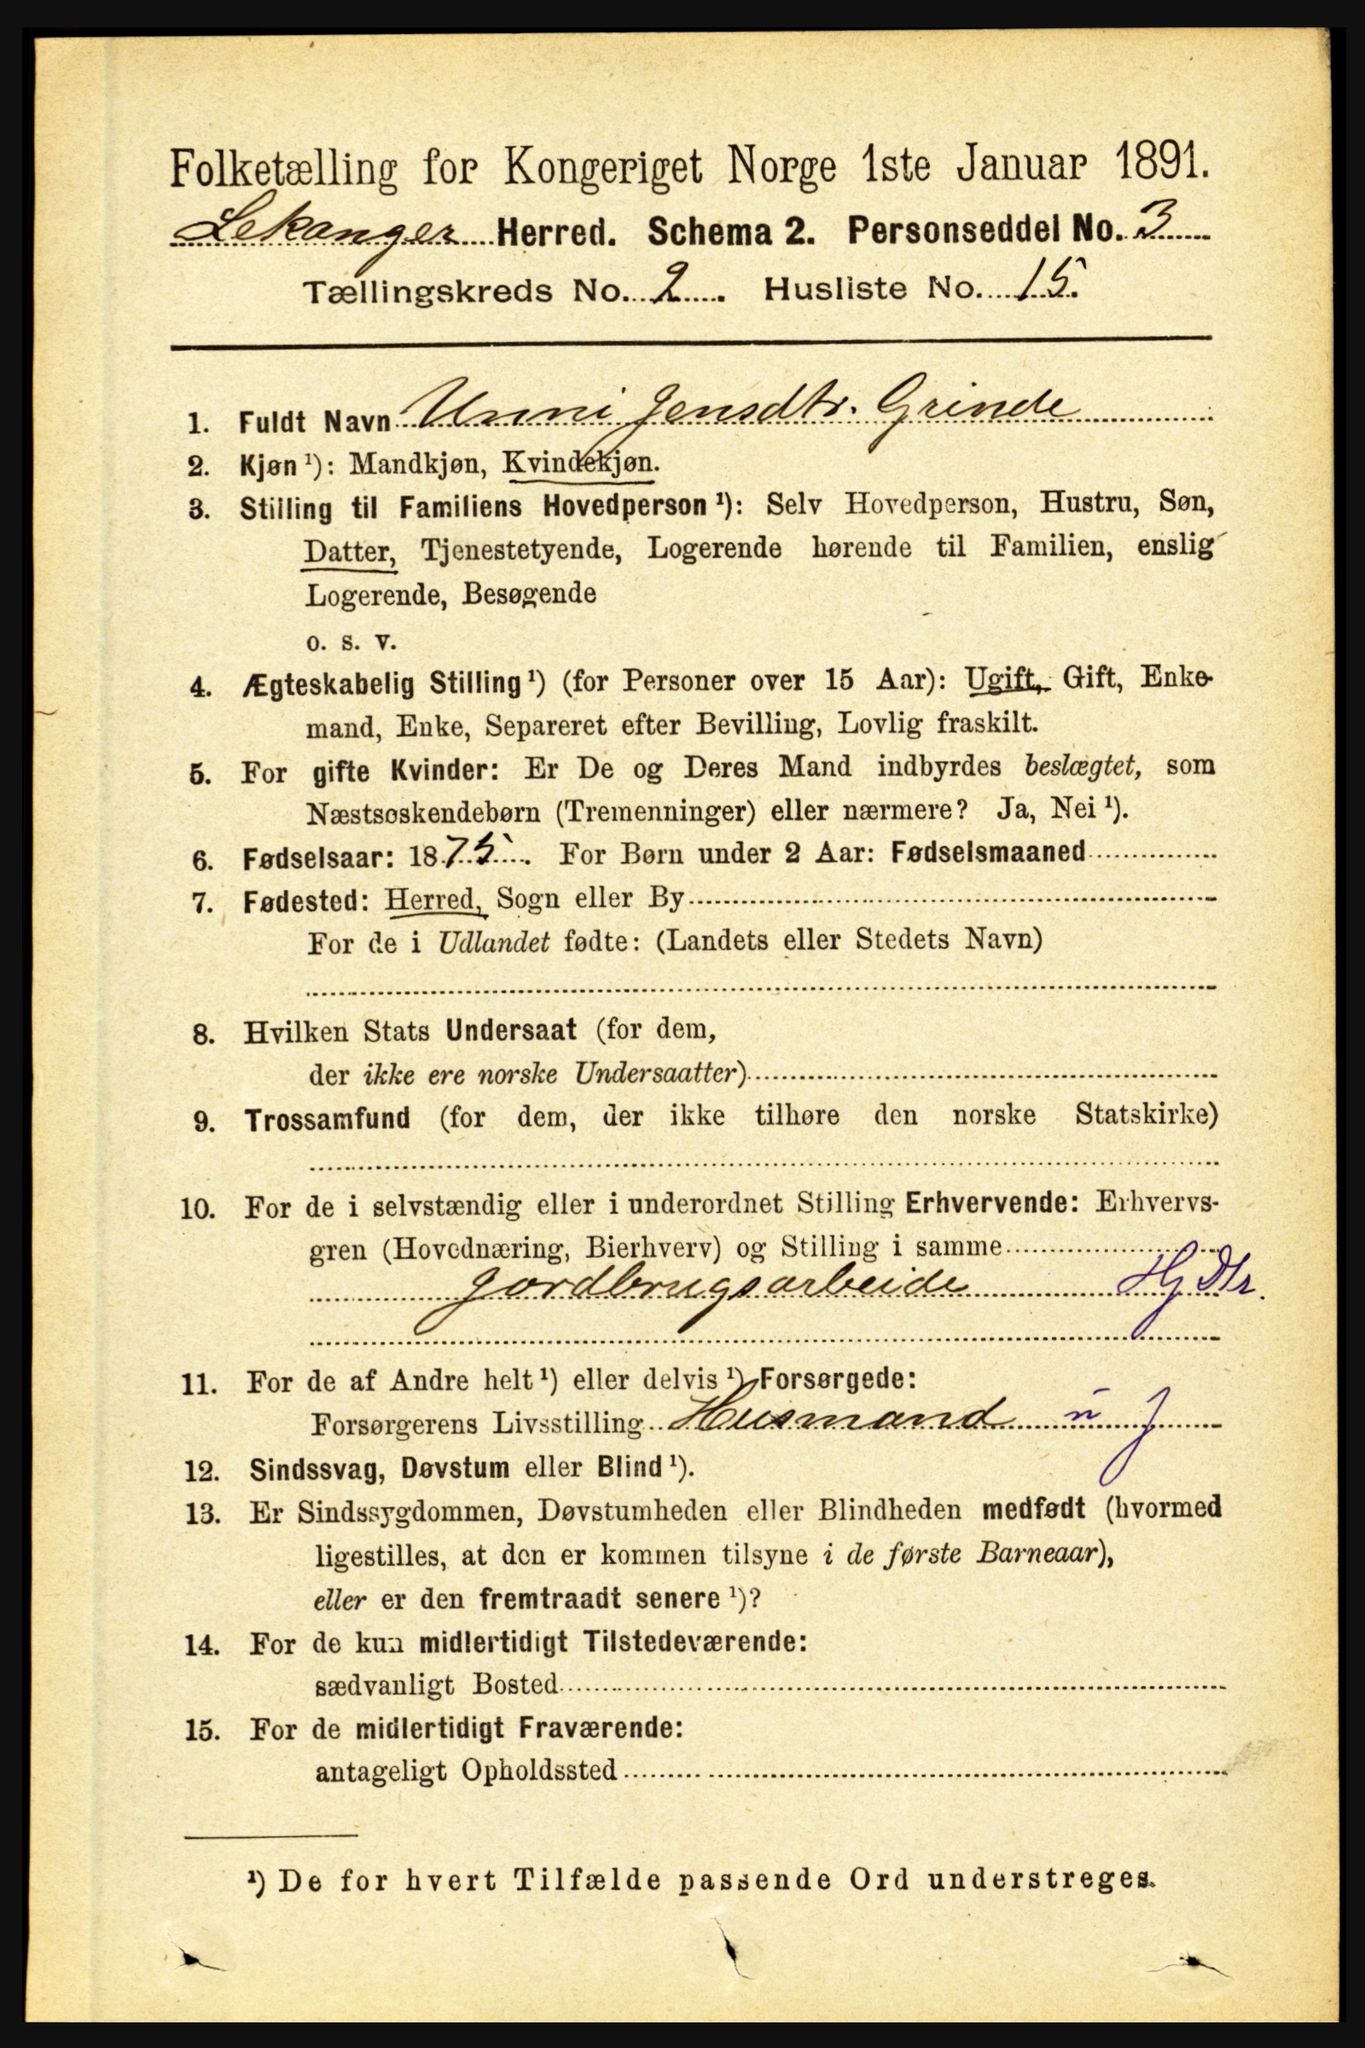 Folketælling for Kongeriget Norge 1ste Januar 1891.
Lekanger Herred. Schema 2. Personseddel No. 3
Tællingskreds No. 2. Husliste No. 15.
1. Fuldt Navn Unni Jensdtr. Grinde
2. Kjøn ¹): Mandkjøn, Kvindekjøn.
3. Stilling til Familiens Hovedperson ¹): Selv Hovedperson, Hustru, Søn,
Datter, Tjenestetyende, Logerende hørende til Familien, enslig
Logerende, Besøgende
o. s. v.
4. Ægteskabelig Stilling ¹) (for Personer over 15 Aar): Ugift, Gift, Enke-
mand, Enke, Separeret efter Bevilling, Lovlig fraskilt.
5. For gifte Kvinder: Er De og Deres Mand indbyrdes beslægtet, som
Næstsøskendebørn (Tremenninger) eller nærmere? Ja, Nei ¹).
6. Fødselsaar: 1875. For Børn under 2 Aar: Fødselsmaaned
7. Fødested: Herred, Sogn eller By
For de i Udlandet fødte: (Landets eller Stedets Navn)
8. Hvilken Stats Undersaat (for dem,
der ikke ere norske Undersaatter)
9. Trossamfund (for dem, der ikke tilhøre den norske Statskirke)
10. For de i selvstændig eller i underordnet Stilling Erhvervende: Erhvervs-
gren (Hovednæring, Bierhverv) og Stilling i samme
Jordbrugsarbeide Hj Dtr.
11. For de af Andre helt ¹) eller delvis ¹) Forsørgede:
Forsørgerens Livsstilling Husmand u J
12. Sindssvag, Døvstum eller Blind ¹).
13. Er Sindssygdommen, Døvstumheden eller Blindheden medfødt (hvormed
ligestilles, at den er kommen tilsyne i de første Barneaar),
eller er den fremtraadt senere ¹)?
14. For de kun midlertidigt Tilstedeværende:
sædvanligt Bosted
15. For de midlertidigt Fraværende:
antageligt Opholdssted
¹) De for hvert Tilfælde passende Ord understreges.